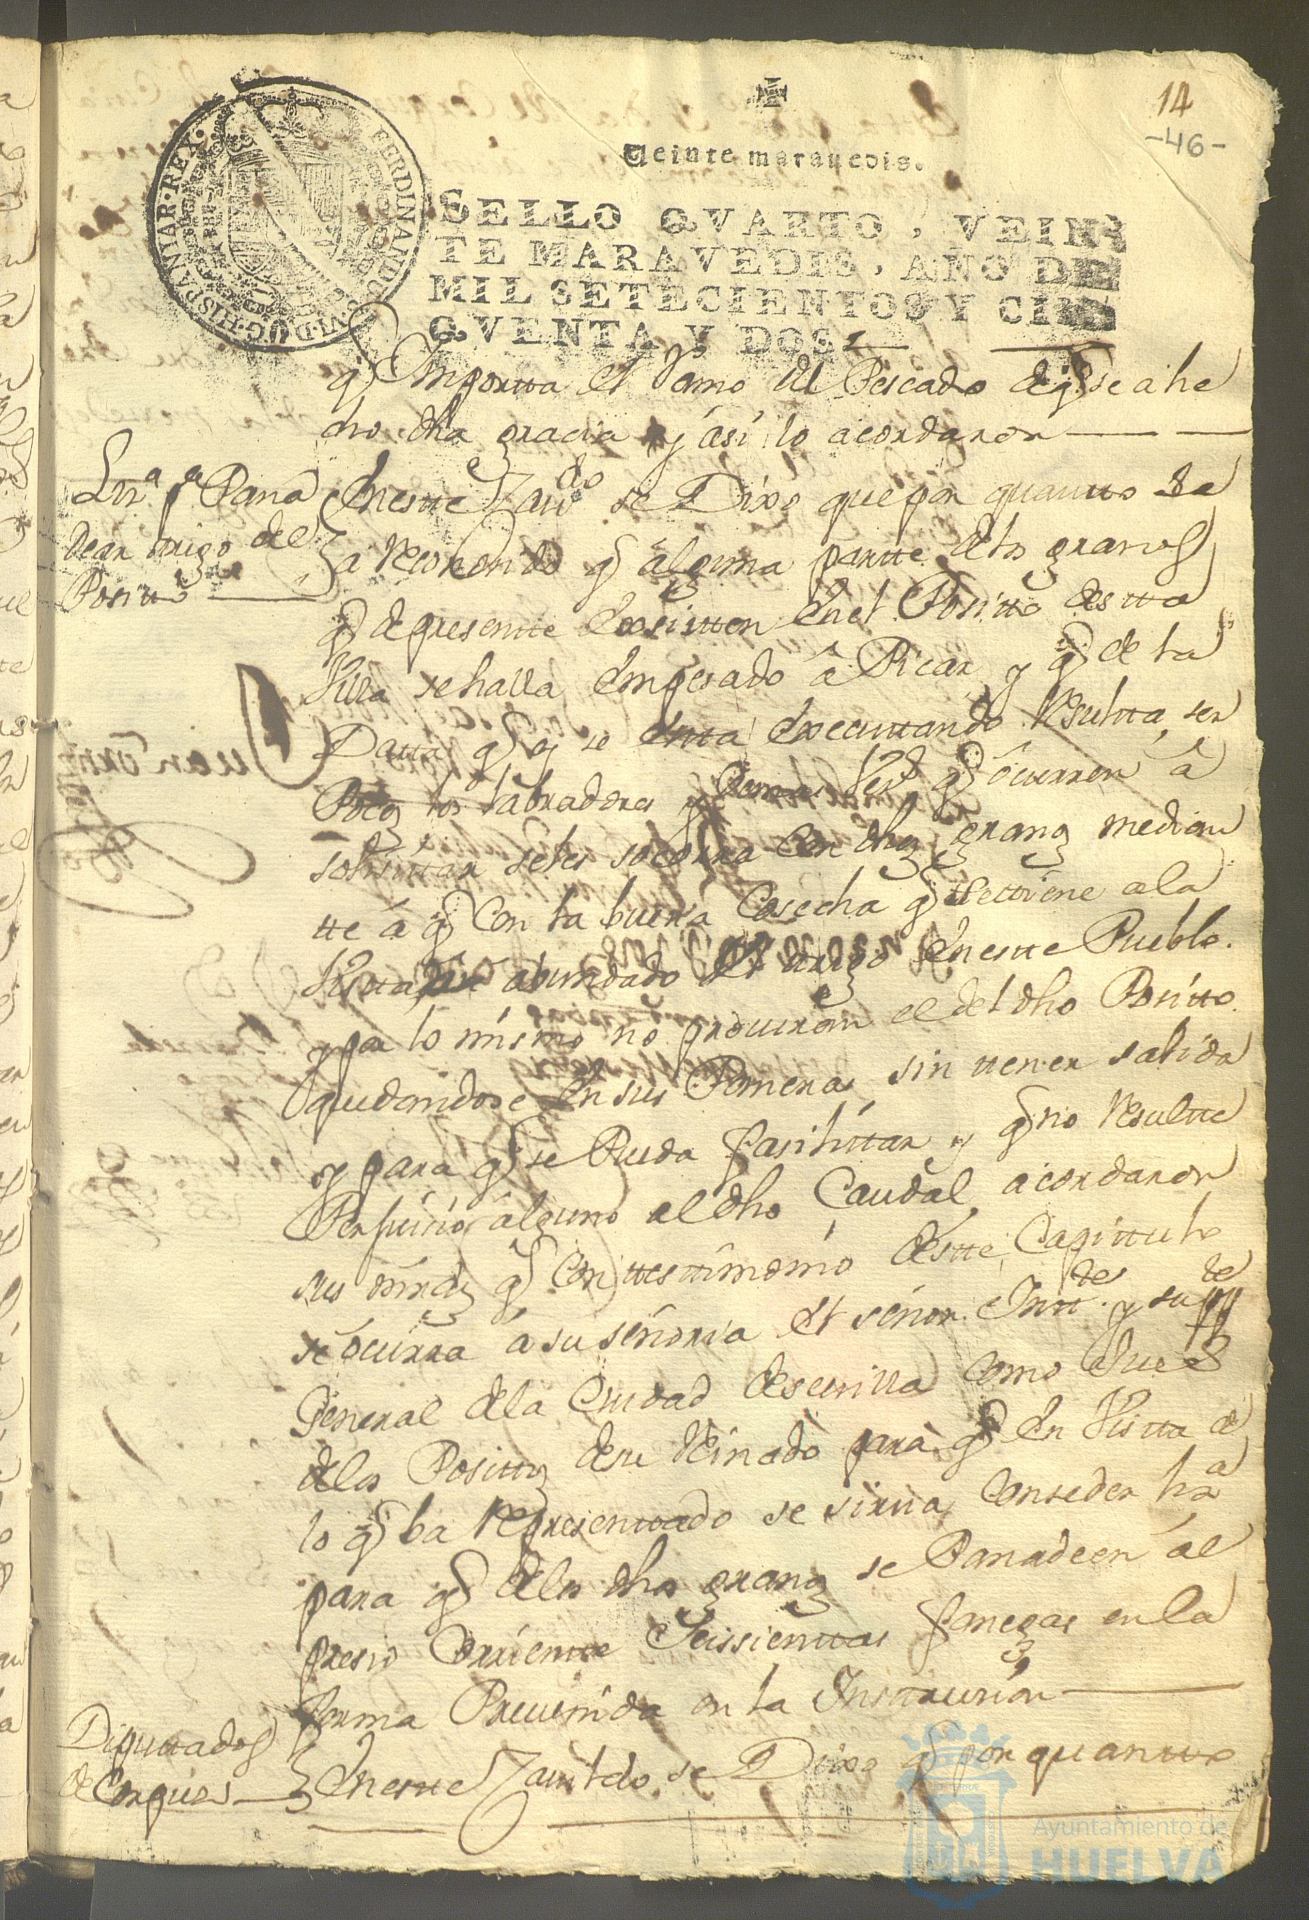 14
-46-
Veinte maravedis.
SELLO QVARTO, VEIN-
TE MARAVEDIS, AÑO DE
MIL SETECIENTOS Y CIN
QVENTA Y DOS.
FERDINANDUS·VI·D·G·HISPANIAR·REX·
q̃ Importta el Ramo del Pescado de q̃ se a he
cho dha gracia y ási lo acordaron
Liz.ª p.ª Pana
dear trigo del
Posito
Enestte Zavdo se Dixo que por quantto se
a reconosido q̃ álguna partte de los granos
q̃ de presentte Exsistten en el Positto destta
Villa se halla Empesado â Picar y q̃ de la
Datta q̃ se Estta Executtando Resultta, ser
Pocos los labradores y demas q̃ ôcurren â
solisittar se les socorra con dhos granos median
tte á q̃ con la buena Cosecha q̃ se ttiene a la
Vistta abundado el trigo Enestte Pueblo
y por lo mismo no el del dho Positto
quedandose en sus Paneras sin ttener salida
y para q̃ se Pueda fasilittar y q̃ no Resultte
Perjuicio álguno al dho Caudal, acordaron
sus mrds q̃ con ttesttimonio destte Capittulo
se ócurra á su señoria el señor Intte y
General de la Ciudad de sevilla como Juez
de los Posittos de su Reinado para q̃ en Vistta de
lo q̃ ba Representtado se sirva Conseder
para q̃ de los dhos granos se Panadeen ál
presio Corrientte Seissienttas fanegas en la
forma Prevenida en la Instrucción
Diputtados
de Corpus
Enestte Zavildo se Dixo q̃ por quantto
Ayuntamiento de
HUELVA